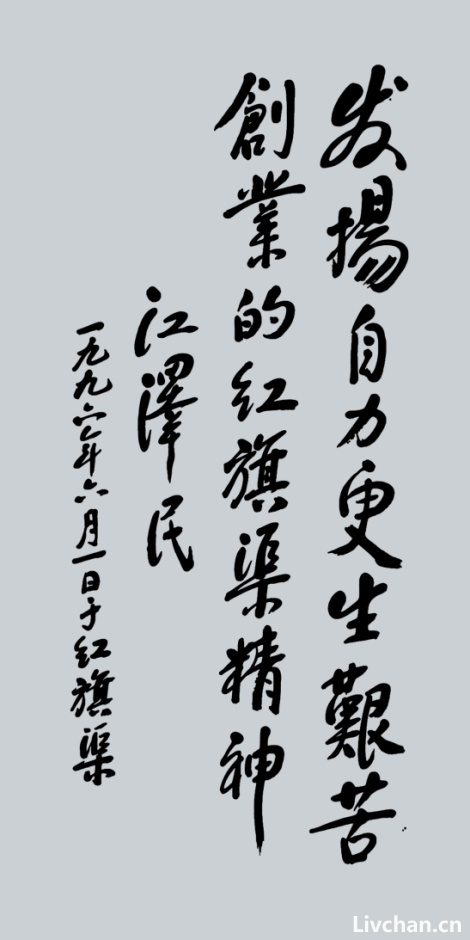 发揚自力更生艱苦
創業的红旗渠精神
江澤民
一九九六年六月一日于红旗渠
Livchan.cn